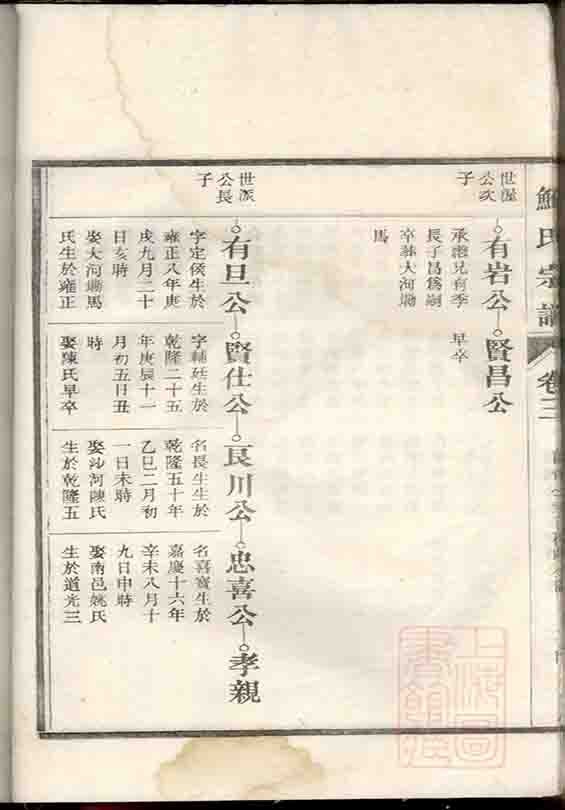 氏宗譜
卷三
世渥
公次
子
有岩公
賢昌公
承繼兄有季
長子昌爲嗣
卒葬大河塝
馬
早卒
世派
公長
子
有旦公
賢仕公
良川公
忠喜公
孝親
字定侯生於
雍正八年庚
戌九月二十
日亥時
娶大河塝馬
氏生於雍正
字輔廷生於
乾隆二十五
年庚辰十一
月初五日丑
時
娶陳氏早卒
名長生生於
乾隆五十年
乙巳二月初
一日未時
娶沙河陳氏
生於乾隆五
名喜寶生於
嘉慶十六年
辛未八月十
九日申時
娶南邑姚氏
生於道光三
上海圖
書館藏